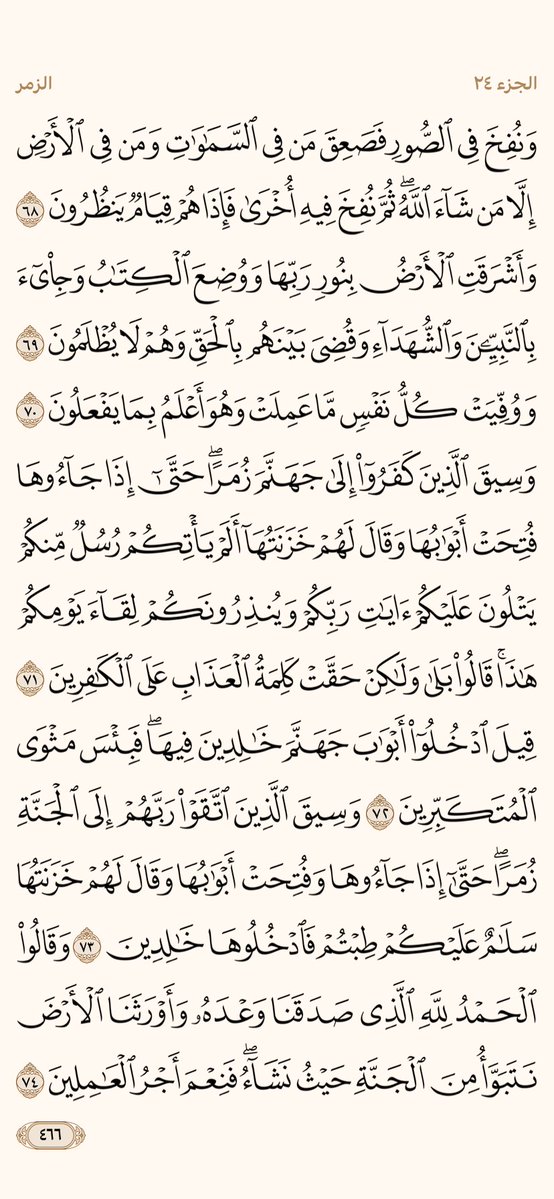 الجزء ٢٤
الزمر
وَنُفِخَ فِي ٱلصُّورِ فَصَعِقَ مَن فِي ٱلسَّمَٰوَٰتِ وَمَن فِي ٱلۡأَرۡضِ
إِلَّا مَن شَآءَ ٱللَّهُۖ ثُمَّ نُفِخَ فِيهِ أُخۡرَىٰ فَإِذَا هُمۡ قِيَامٞ يَنظُرُونَ ٦٨
وَأَشۡرَقَتِ ٱلۡأَرۡضُ بِنُورِ رَبِّهَا وَوُضِعَ ٱلۡكِتَٰبُ وَجِاْيٓءَ
بِٱلنَّبِيِّـۧنَ وَٱلشُّهَدَآءِ وَقُضِيَ بَيۡنَهُم بِٱلۡحَقِّ وَهُمۡ لَا يُظۡلَمُونَ ٦٩
وَوُفِّيَتۡ كُلُّ نَفۡسٖ مَّا عَمِلَتۡ وَهُوَ أَعۡلَمُ بِمَا يَفۡعَلُونَ ٧٠
وَسِيقَ ٱلَّذِينَ كَفَرُوٓاْ إِلَىٰ جَهَنَّمَ زُمَرًاۖ حَتَّىٰٓ إِذَا جَآءُوهَا
فُتِحَتۡ أَبۡوَٰبُهَا وَقَالَ لَهُمۡ خَزَنَتُهَآ أَلَمۡ يَأۡتِكُمۡ رُسُلٞ مِّنكُمۡ
يَتۡلُونَ عَلَيۡكُمۡ ءَايَٰتِ رَبِّكُمۡ وَيُنذِرُونَكُمۡ لِقَآءَ يَوۡمِكُمۡ
هَٰذَاۚ قَالُواْ بَلَىٰ وَلَٰكِنۡ حَقَّتۡ كَلِمَةُ ٱلۡعَذَابِ عَلَى ٱلۡكَٰفِرِينَ ٧١
قِيلَ ٱدۡخُلُوٓاْ أَبۡوَٰبَ جَهَنَّمَ خَٰلِدِينَ فِيهَاۖ فَبِئۡسَ مَثۡوَى
ٱلۡمُتَكَبِّرِينَ ٧٢ وَسِيقَ ٱلَّذِينَ ٱتَّقَوۡاْ رَبَّهُمۡ إِلَى ٱلۡجَنَّةِ
زُمَرًاۖ حَتَّىٰٓ إِذَا جَآءُوهَا وَفُتِحَتۡ أَبۡوَٰبُهَا وَقَالَ لَهُمۡ خَزَنَتُهَا
سَلَٰمٌ عَلَيۡكُمۡ طِبۡتُمۡ فَٱدۡخُلُوهَا خَٰلِدِينَ ٧٣ وَقَالُواْ
ٱلۡحَمۡدُ لِلَّهِ ٱلَّذِي صَدَقَنَا وَعۡدَهُۥ وَأَوۡرَثَنَا ٱلۡأَرۡضَ
نَتَبَوَّأُ مِنَ ٱلۡجَنَّةِ حَيۡثُ نَشَآءُۖ فَنِعۡمَ أَجۡرُ ٱلۡعَٰمِلِينَ ٧٤
٤٦٦